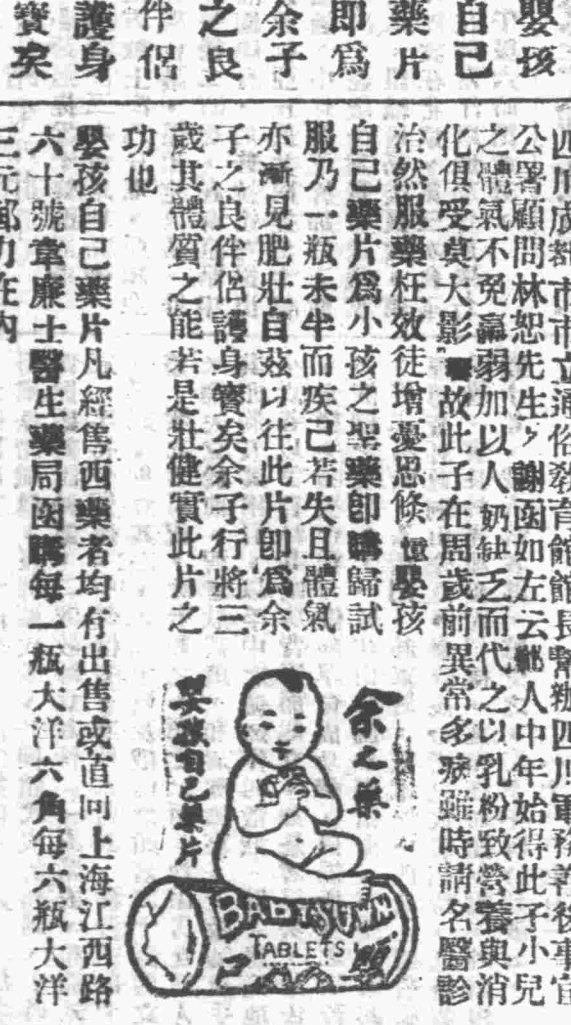 嬰孩
自己
藥片
即爲
余子
之良
伴侶
護身
寶矣
四川成都市市立通俗敎育館館長暨辦四川軍務善後事宜
公署顧問林恕先生,謝函如左云鄙人中年始得此子小兒
之體氣不免羸弱加以人奶缺乏而代之以乳粉致營養與消
化俱受莫大影故此子在周歲前異常多病雖時請名醫診
治然服藥枉效徒增憂思倏憶嬰孩
自己藥片爲小孩之聖藥卽購歸試
服乃一瓶未半而疾已若失且體氣
亦漸見肥壯自茲以往此片卽爲余
子之良伴侶護身寶矣余子行將三
歲其體質之能若是壯健實此片之
功也
余之藥
嬰孩自己藥片
BABY'S OWN
TABLETS
己
嬰孩自己藥片凡經售西藥者均有出售或直向上海江西路
六十號韋廉士醫生藥局函購每一瓶大洋六角每六瓶大洋
三元郵力在內